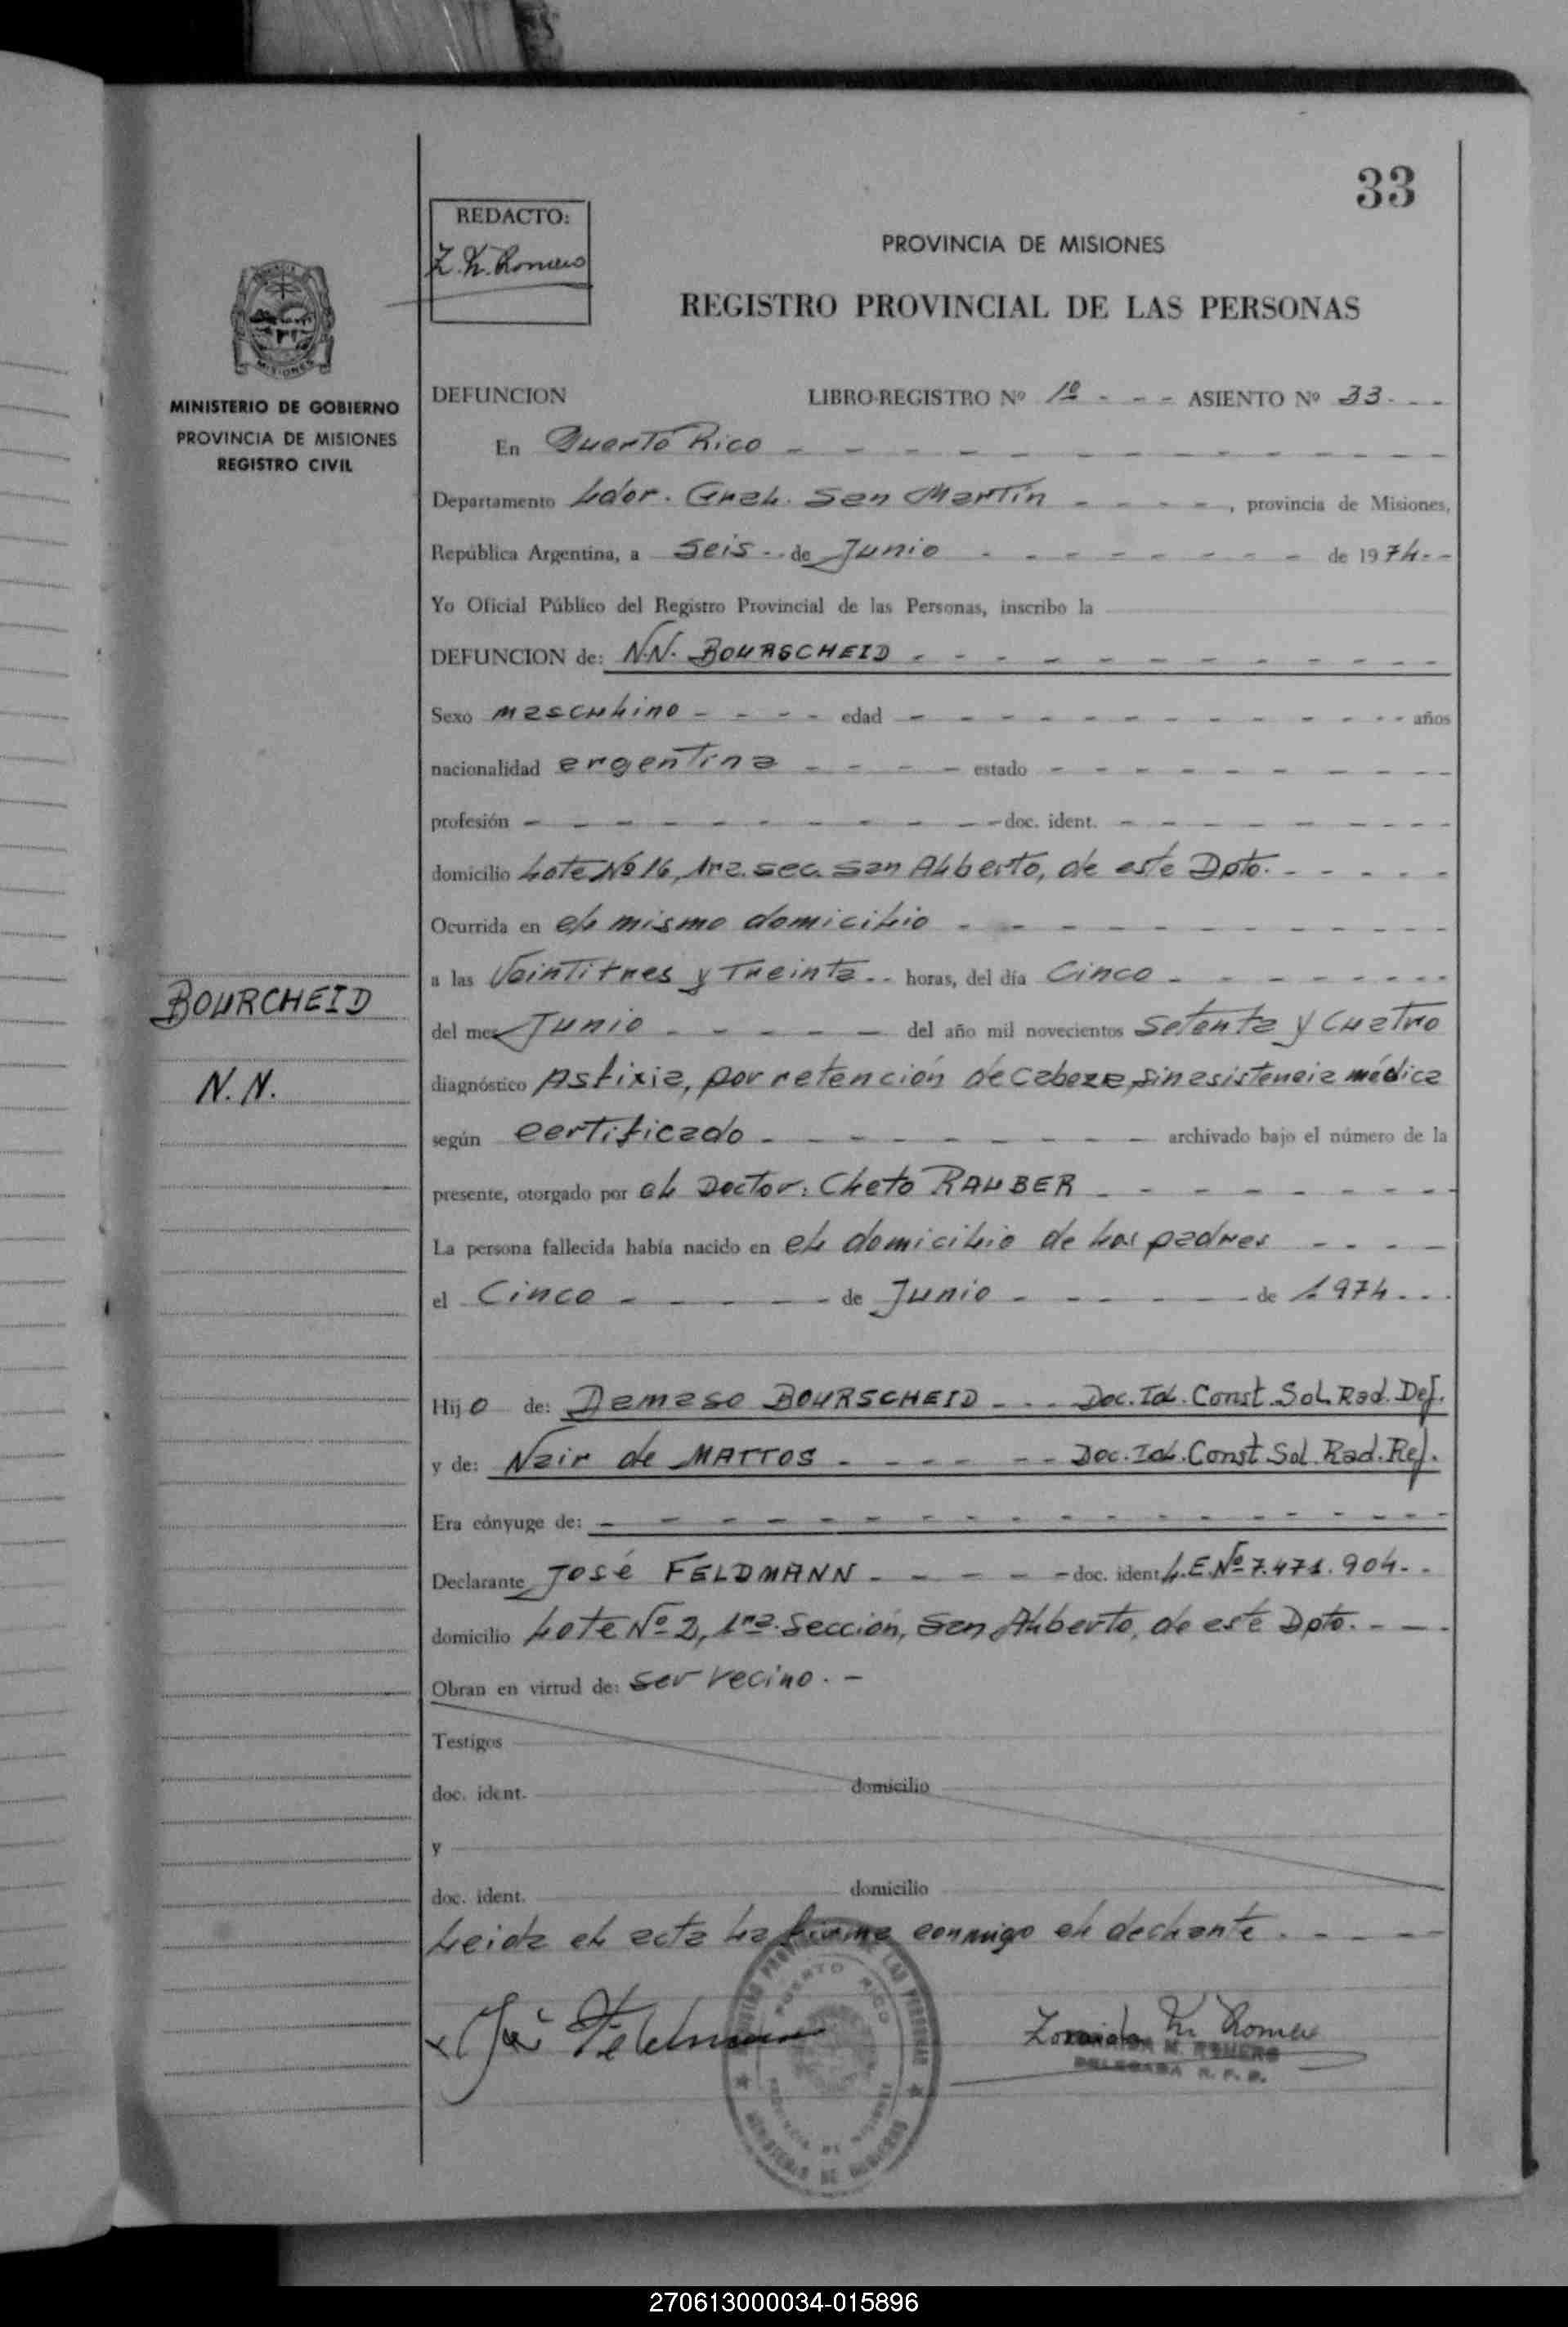 33
REDACTO:
Z. M. Romero
PROVINCIA DE MISIONES
REGISTRO PROVINCIAL DE LAS PERSONAS
MISIONES
MINISTERIO DE GOBIERNO
PROVINCIA DE MISIONES
REGISTRO CIVIL
DEFUNCION LIBRO-REGISTRO Nº 1º - - - ASIENTO Nº 33 - - -
En Puerto Rico
Departamento Ldor. Gral. San Martín - - - - , provincia de Misiones,
República Argentina, a seis - - de Junio - - - de 1974 - -
Yo Oficial Público del Registro Provincial de las Personas, inscribo la
DEFUNCION de: N.N. BOURSCHEID
Sexo masculino - - - - edad - - - años
nacionalidad argentina - - - - estado - - -
profesión - - - doc. ident. - - -
domicilio Lote Nº 16, 1ra. sec. San Alberto, de este Dpto.
Ocurrida en el mismo domicilio
a las Veintitres y Treinta - - horas, del día Cinco
BOURCHEID
del mes Junio - - - del año mil novecientos Setenta y Cuatro
N.N.
diagnóstico Asfixia, por retención de cabeza, sin asistencia médica
según certificado - - - archivado bajo el número de la
presente, otorgado por el Doctor: Cleto RAUBER
La persona fallecida había nacido en el domicilio de los padres
el Cinco - - - de Junio - - - de 1974 - - -
Hijo de: Damaso BOURSCHEID - - - Doc. Id. Const. Sol. Rad. Def.
y de: Nair de MATTOS - - - Doc. Id. Const. Sol. Rad. Def.
Era cónyuge de: - - -
Declarante José FELDMANN - - - doc. ident. L.E. Nº 7.471.904 - -
domicilio Lote Nº 2, 1ra. Sección, San Alberto, de este Dpto.
Obran en virtud de: ser vecino. -
Testigos
doc. ident. domicilio
y
doc. ident. domicilio
Leida el acta la firma conmigo el declante
José Feldmann
Zoraida M. Romero
ZORAIDA M. ROMERO
DELEGADA R. P. P.
REGISTRO PROVINCIAL DE LAS PERSONAS
PUERTO RICO
PROVINCIA DE MISIONES
MINISTERIO DE GOBIERNO
270613000034-015896